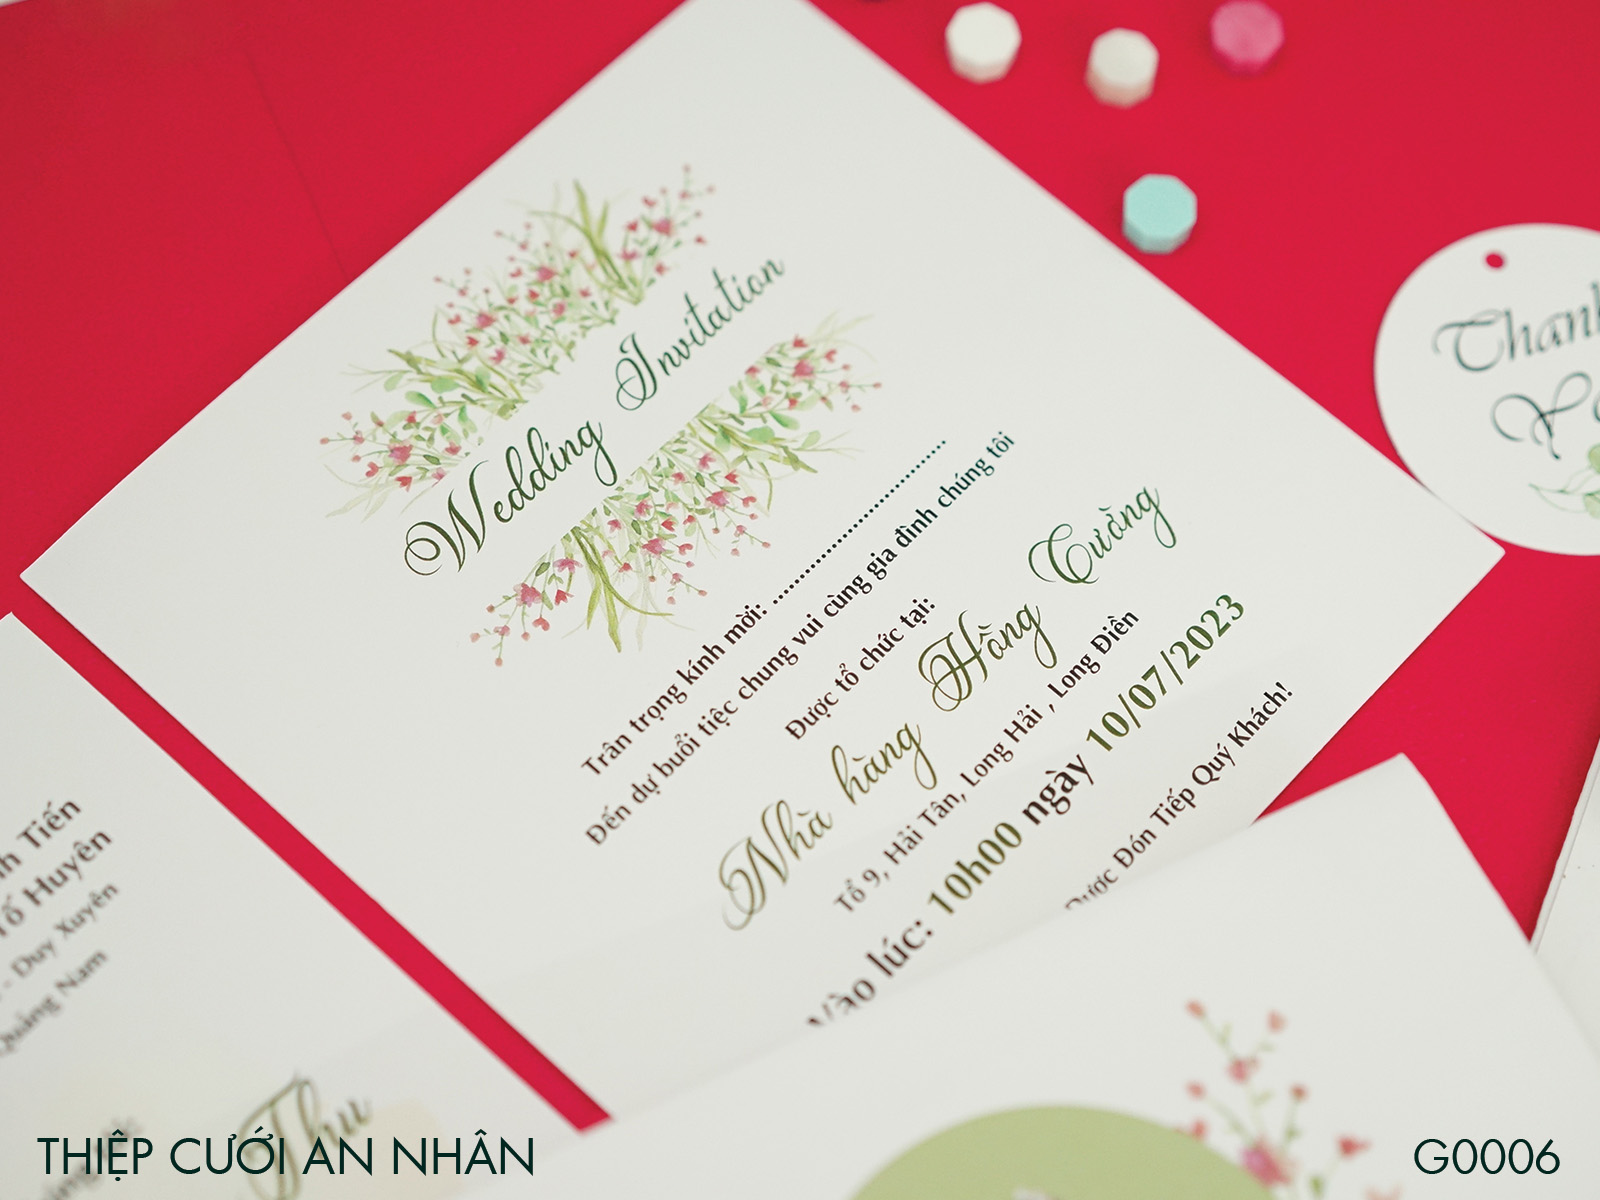 Wedding Invitation
Trân trọng kính mời: ........................................
Đến dự buổi tiệc chung vui cùng gia đình chúng tôi
Được tổ chức tại:
Nhà hàng Hồng Cường
Tổ 9, Hải Tân, Long Hải , Long Điền
Vào lúc: 10h00 ngày 10/07/2023
Được Đón Tiếp Quý Khách!
Thank
Tiến
Tố Huyên
- Duy Xuyên
Quảng Nam
Thu
THIỆP CƯỚI AN NHÂN
G0006